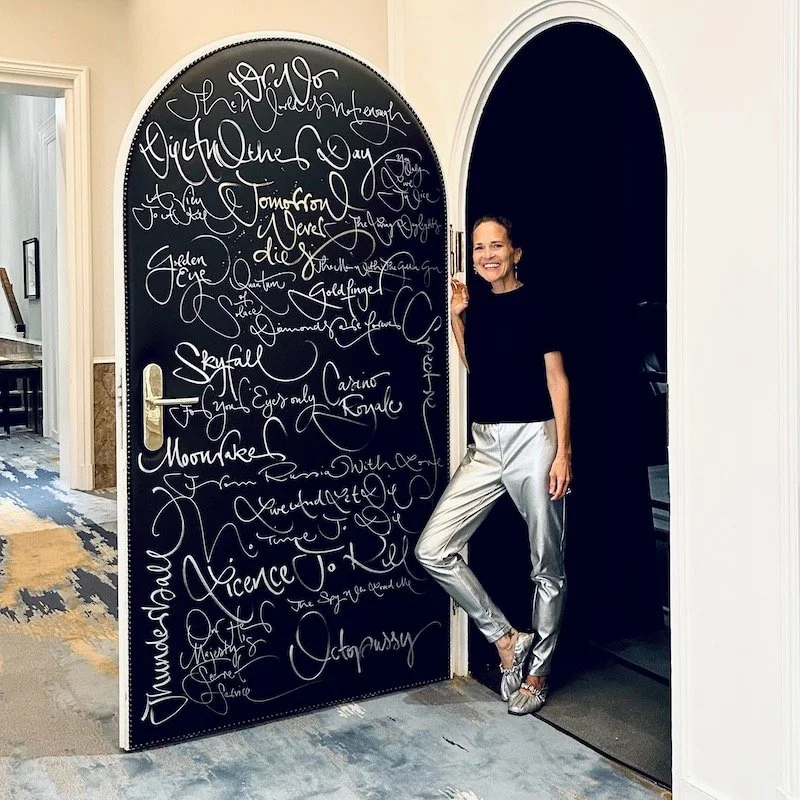 Dr. No
The World Is Not enough
Die Another Day
You
Only
Live
Twice
A View
To A Kill
Tomorrow
Never
dies
The Living Daylights
Golden
Eye
The Man With The Golden Gun
Quantum
of
Solace
Goldfinger
Diamonds are forever
Spectre
Skyfall
For Your Eyes only
Casino
Royale
Moonraker
From Russia With Love
Live And Let Die
No Time To Die
Licence To Kill
The Spy Who Loved Me
Thunderball
On Her
Majesty's
Secret
Service
Octopussy